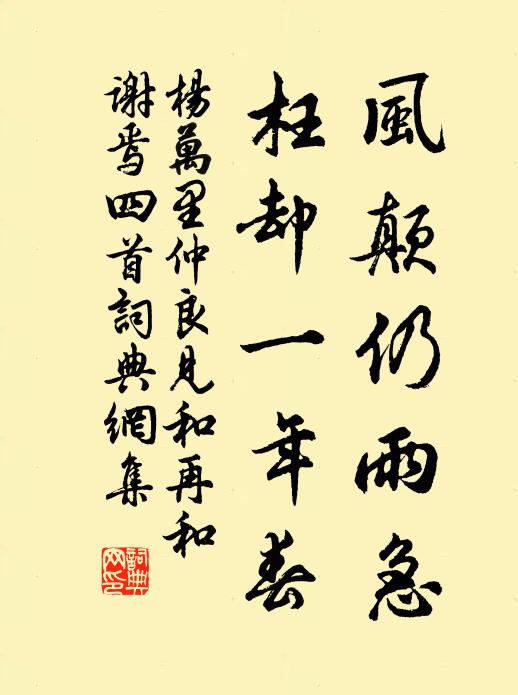 風顛仍雨急
枉却一年春
楊萬里仲良見和再和
謝焉四首詞典網集
詞典网印